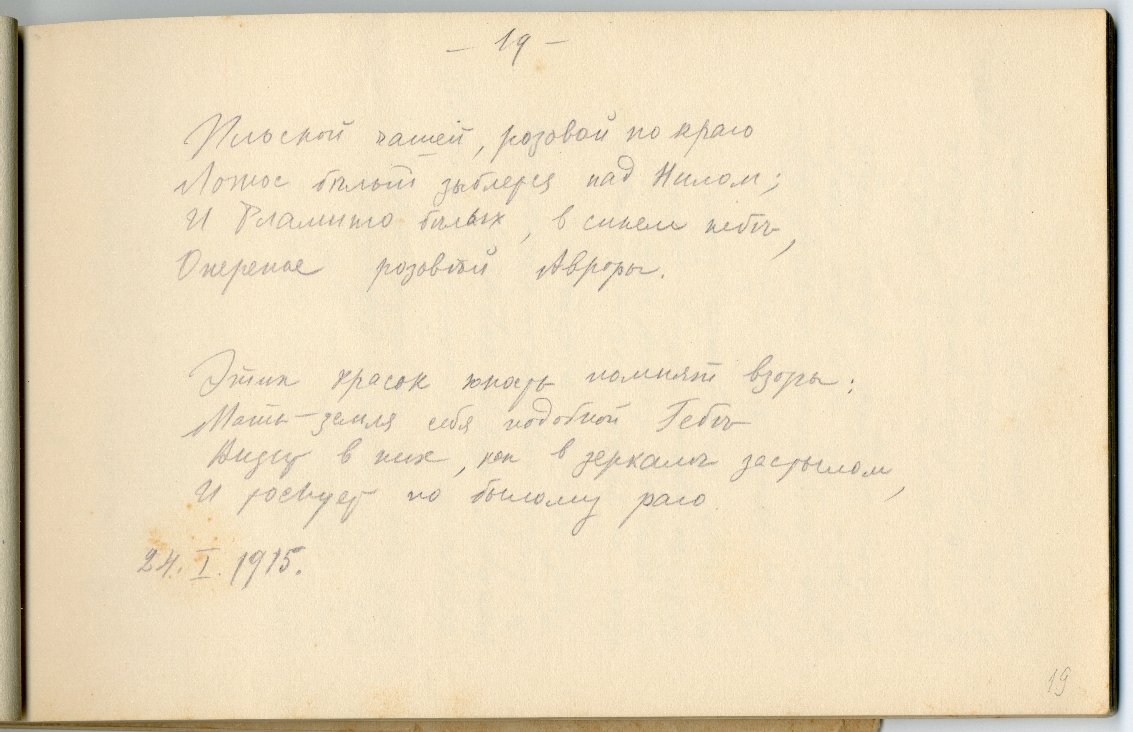 — 19 —
Плоской чашей, розовой по краю
Лотос бѣлый зыблется над Нилом;
И Фламинго бѣлых, в синем небѣ,
Оперенье розовѣй Авроры.
Этих красок юность помнят взоры:
Мать-земля себя подобной Гебѣ
Видит в них, как в зеркалѣ застылом,
И тоскует по былому раю
24. I. 1915.
19